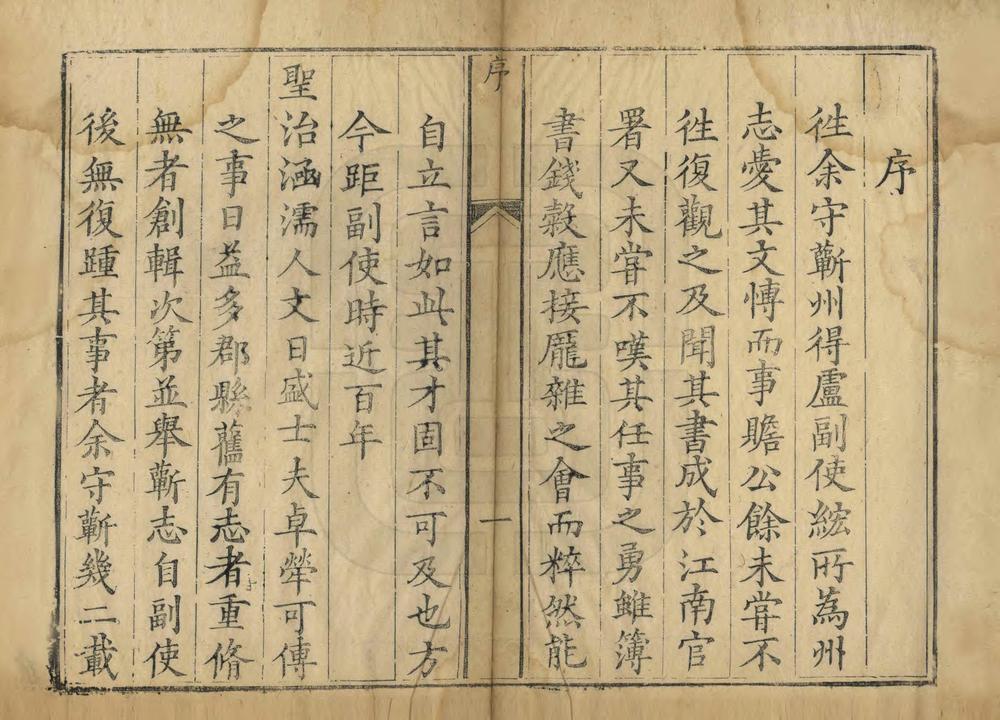 序
往余守蘄州得盧副使綋所為州
志愛其文愽而事贍公餘未嘗不
往復觀之及聞其書成於江南官
署又未嘗不嘆其任事之勇雖簿
書錢穀應接龎雜之會而粹然能
序
一
自立言如此其才固不可及也方
今距副使時近百年
聖治涵濡人文日盛士夫卓犖可傳
之事日益多郡縣舊有志者重脩
無者創輯次第並舉蘄志自副使
後無復踵其事者余守蘄幾二載